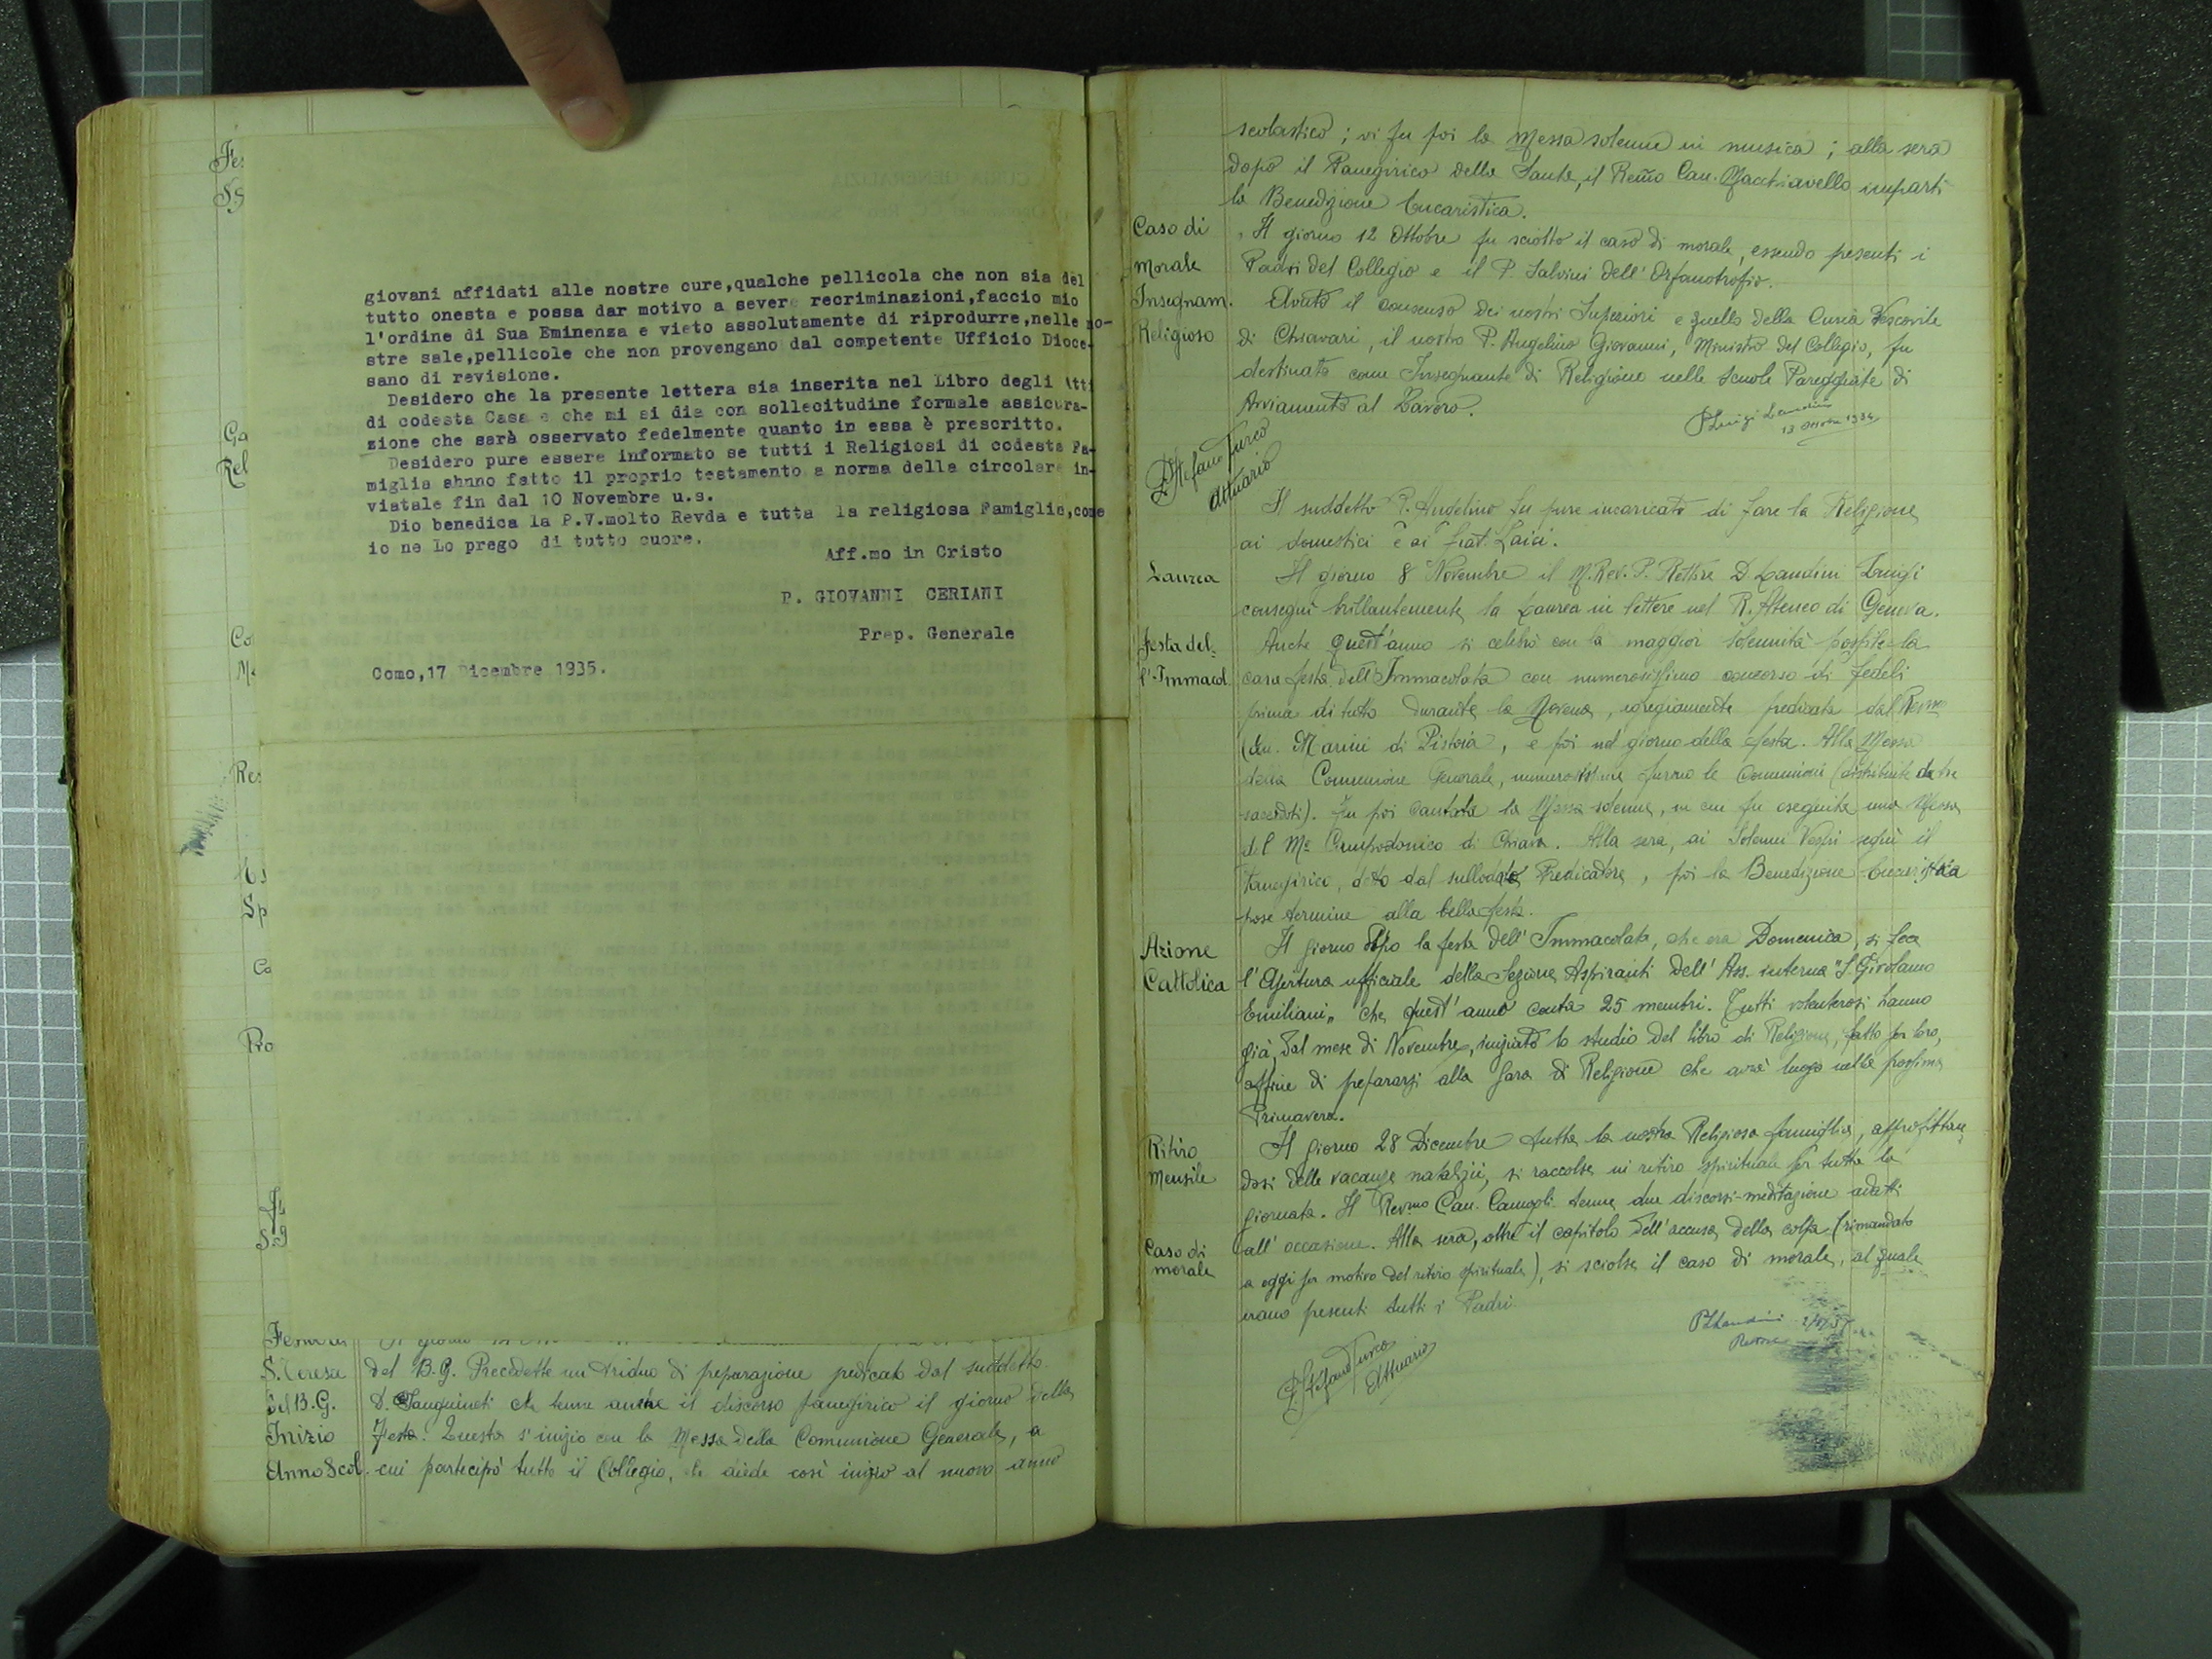 giovani affidati alle nostre cure,qualche pellicola che non sia del
tutto onesta e possa dar motivo a severe recriminazioni,faccio mio
l'ordine di Sua Eminenza e vieto assolutamente di riprodurre,nelle no-
stre sale,pellicole che non provengano dal competente Ufficio Dioce-
sano di revisione.
Desidero che la presente lettera sia inserita nel Libro degli Atti
di codesta Casa e che mi si dia con sollecitudine formale assicura-
zione che sarà osservato fedelmente quanto in essa è prescritto.
Desidero pure essere informato se tutti i Religiosi di codesta Fa-
miglia ahnno fatto il proprio testamento a norma della circolare in-
viatale fin dal 10 Novembre u.s.
Dio benedica la P.V.molto Revda e tutta la religiosa Famiglia,come
io ne Lo prego di tutto cuore.
Aff.mo in Cristo
P. GIOVANNI CERIANI
Prep. Generale
Como,17 Dicembre 1935.
S. Teresa del B.G. Precedette un triduo di preparazione predicato dal suddetto
del B.G. D. Sanguineti che tenne anche il discorso panegirico il giorno della
Inizio Festa. Questa s'inizio con la Messa della Comunione Generale, a
Anno Scol. cui partecipò tutto il Collegio, che diede così inizio al nuovo anno
scolastico; vi fu poi la Messa solenne in musica; alla sera
dopo il Panegirico della Santa, il Remo Can. Macchiavello impartì
la Benedizione Eucaristica.
Caso di Il giorno 12 Ottobre fu sciolto il caso di morale, essendo presenti i
Morale Padri del Collegio e il P. Salvini dell'Orfanotrofio.
Insegnam. Avuto il consenso dei nostri Superiori e quello della Curia Vescovile
Religioso di Chiavari, il nostro P. Angelino Giovanni, Ministro del Collegio, fu
destinato come Insegnante di Religione nelle Scuole Pareggiate di
Avviamento al Lavoro.
P. Luigi Landini
13 Ottobre 1934
P. Stefano Turco
Attuario
Il suddetto P. Angelino fu pure incaricato di fare la Religione
ai domestici e ai frat. Laici.
Laurea Il giorno 8 Novembre il M. Rev. P. Rettore D. Landini Luigi
conseguì brillantemente la Laurea in lettere nel R. Ateneo di Genova.
Festa del- Anche quest'anno si celebrò con la maggior solennità possibile la
l'Immacol. cara festa dell'Immacolata con numerosissimo concorso di fedeli
prima di tutto durante la Novena, egregiamente predicata dal Revmo
Can. Marini di Pistoia, e poi nel giorno della festa. Alla Messa
della Comunione Generale, numerosissime furono le Comunioni (distribuite da tre
sacerdoti). Fu poi cantata la Messa solenne, in cui fu eseguita una Messa
del Mo Campodonico di Chiavari. Alla sera, ai Solenni Vespri seguì il
Panegirico, detto dal sullodato Predicatore, poi la Benedizione Eucaristica
pose termine alla bella festa.
Azione Il giorno dopo la festa dell'Immacolata, che era Domenica, si fece
Cattolica l'Apertura ufficiale della Sezione Aspiranti dell'Ass. interna "S. Girolamo
Emiliani" che quest'anno conta 25 membri. Tutti volenterosi hanno
già, dal mese di Novembre, iniziato lo studio del libro di Religione, fatto per loro,
affine di prepararsi alla Gara di Religione che avrà luogo nella prossima
Primavera.
Ritiro Il giorno 28 Dicembre tutta la nostra Religiosa famiglia, approfittan
Mensile dosi delle vacanze natalizie, si raccolse in ritiro spirituale per tutta la
giornata. Il Revmo Can. tenne due discorsi-meditazione adatti
Caso di all'occasione. Alla sera, oltre il capitolo dell'accusa della colpa (rimandato
morale a oggi per motivo del ritiro spirituale), si sciolse il caso di morale, al quale
erano presenti tutti i Padri
P. Landini
Rettore
P. Stefano Turco
Attuario